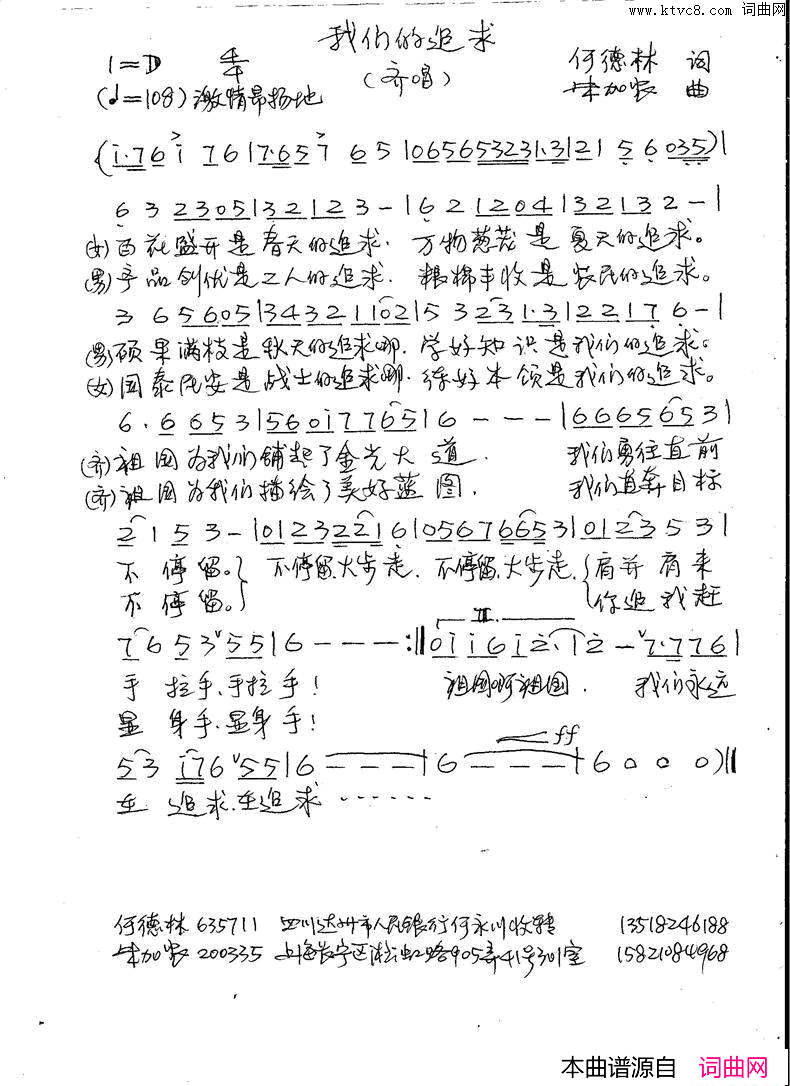 www.ktvc8.com 词曲网
我们的追求
1=D 4/4 (齐唱) 何德林 词
(♩=108) 激情昂扬地 朱加农 曲
(i·76 i 76|7·65 7 65|06565323 1·3|21 5 6 035)|
6 3 2305|32123-|6 21204|32132-|
(女)百花盛开是春天的追求. 万物葱茏是夏天的追求。
(男)产品创优是工人的追求. 粮棉丰收是农民的追求。
3 65605|34321102|5 3 231·3|22176-|
(男)硕果满枝是秋天的追求哪. 学好知识是我们的追求。
(女)国泰民安是战士的追求哪. 练好本领是我们的追求。
6·6653|560i7765|6---|66656531|
(齐)祖国为我们铺起了金光大道. 我们勇往直前
(齐)祖国为我们描绘了美好蓝图. 我们直奔目标
2153-|01232216|056766531|0123531|
不停留。 不停留、大步走. 不停留、大步走. 肩并肩来
不停留。 你追我赶
7653ⱽ55|6---:‖0ii6i2·i2-ⱽ7·776|
手拉手、手拉手! 祖国啊祖国. 我们永远
显身手、显身手!
ff
53 i76ⱽ55|6---|6---|6000)‖
在追求、在追求······
何德林 635711 四川达州市人民银行何永川收转 13518246188
朱加农 200335 上海长宁区淞虹路905弄41号301室 15821084968
本曲谱源自 词曲网